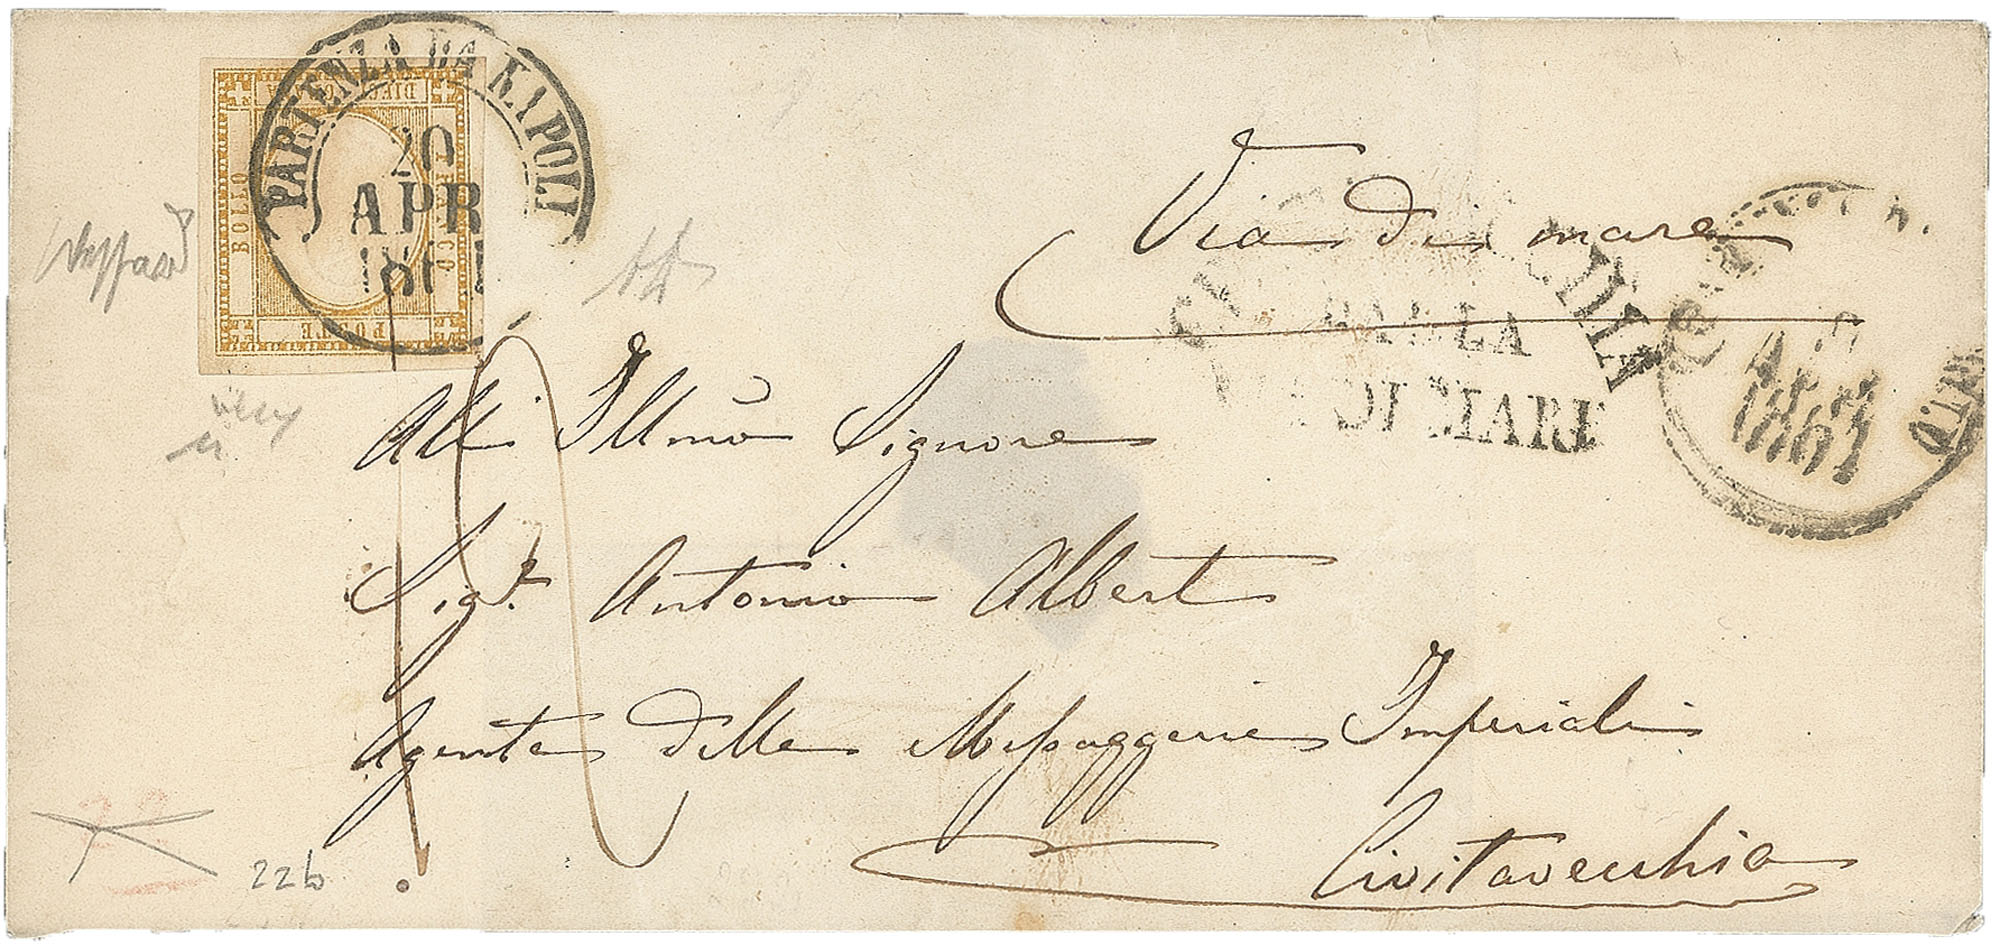 PARTENZA DA NAPOLI
20
APR
1861
DIECI GRANA
BOLLO
FRANCO
POSTALE
Via di mare
DALLA
VIA DI MARE
APR
1861
All' Illmo Signore
Sigr. Antonio Albert
Agente delle Messaggerie Imperiali
Civitavecchia
22b